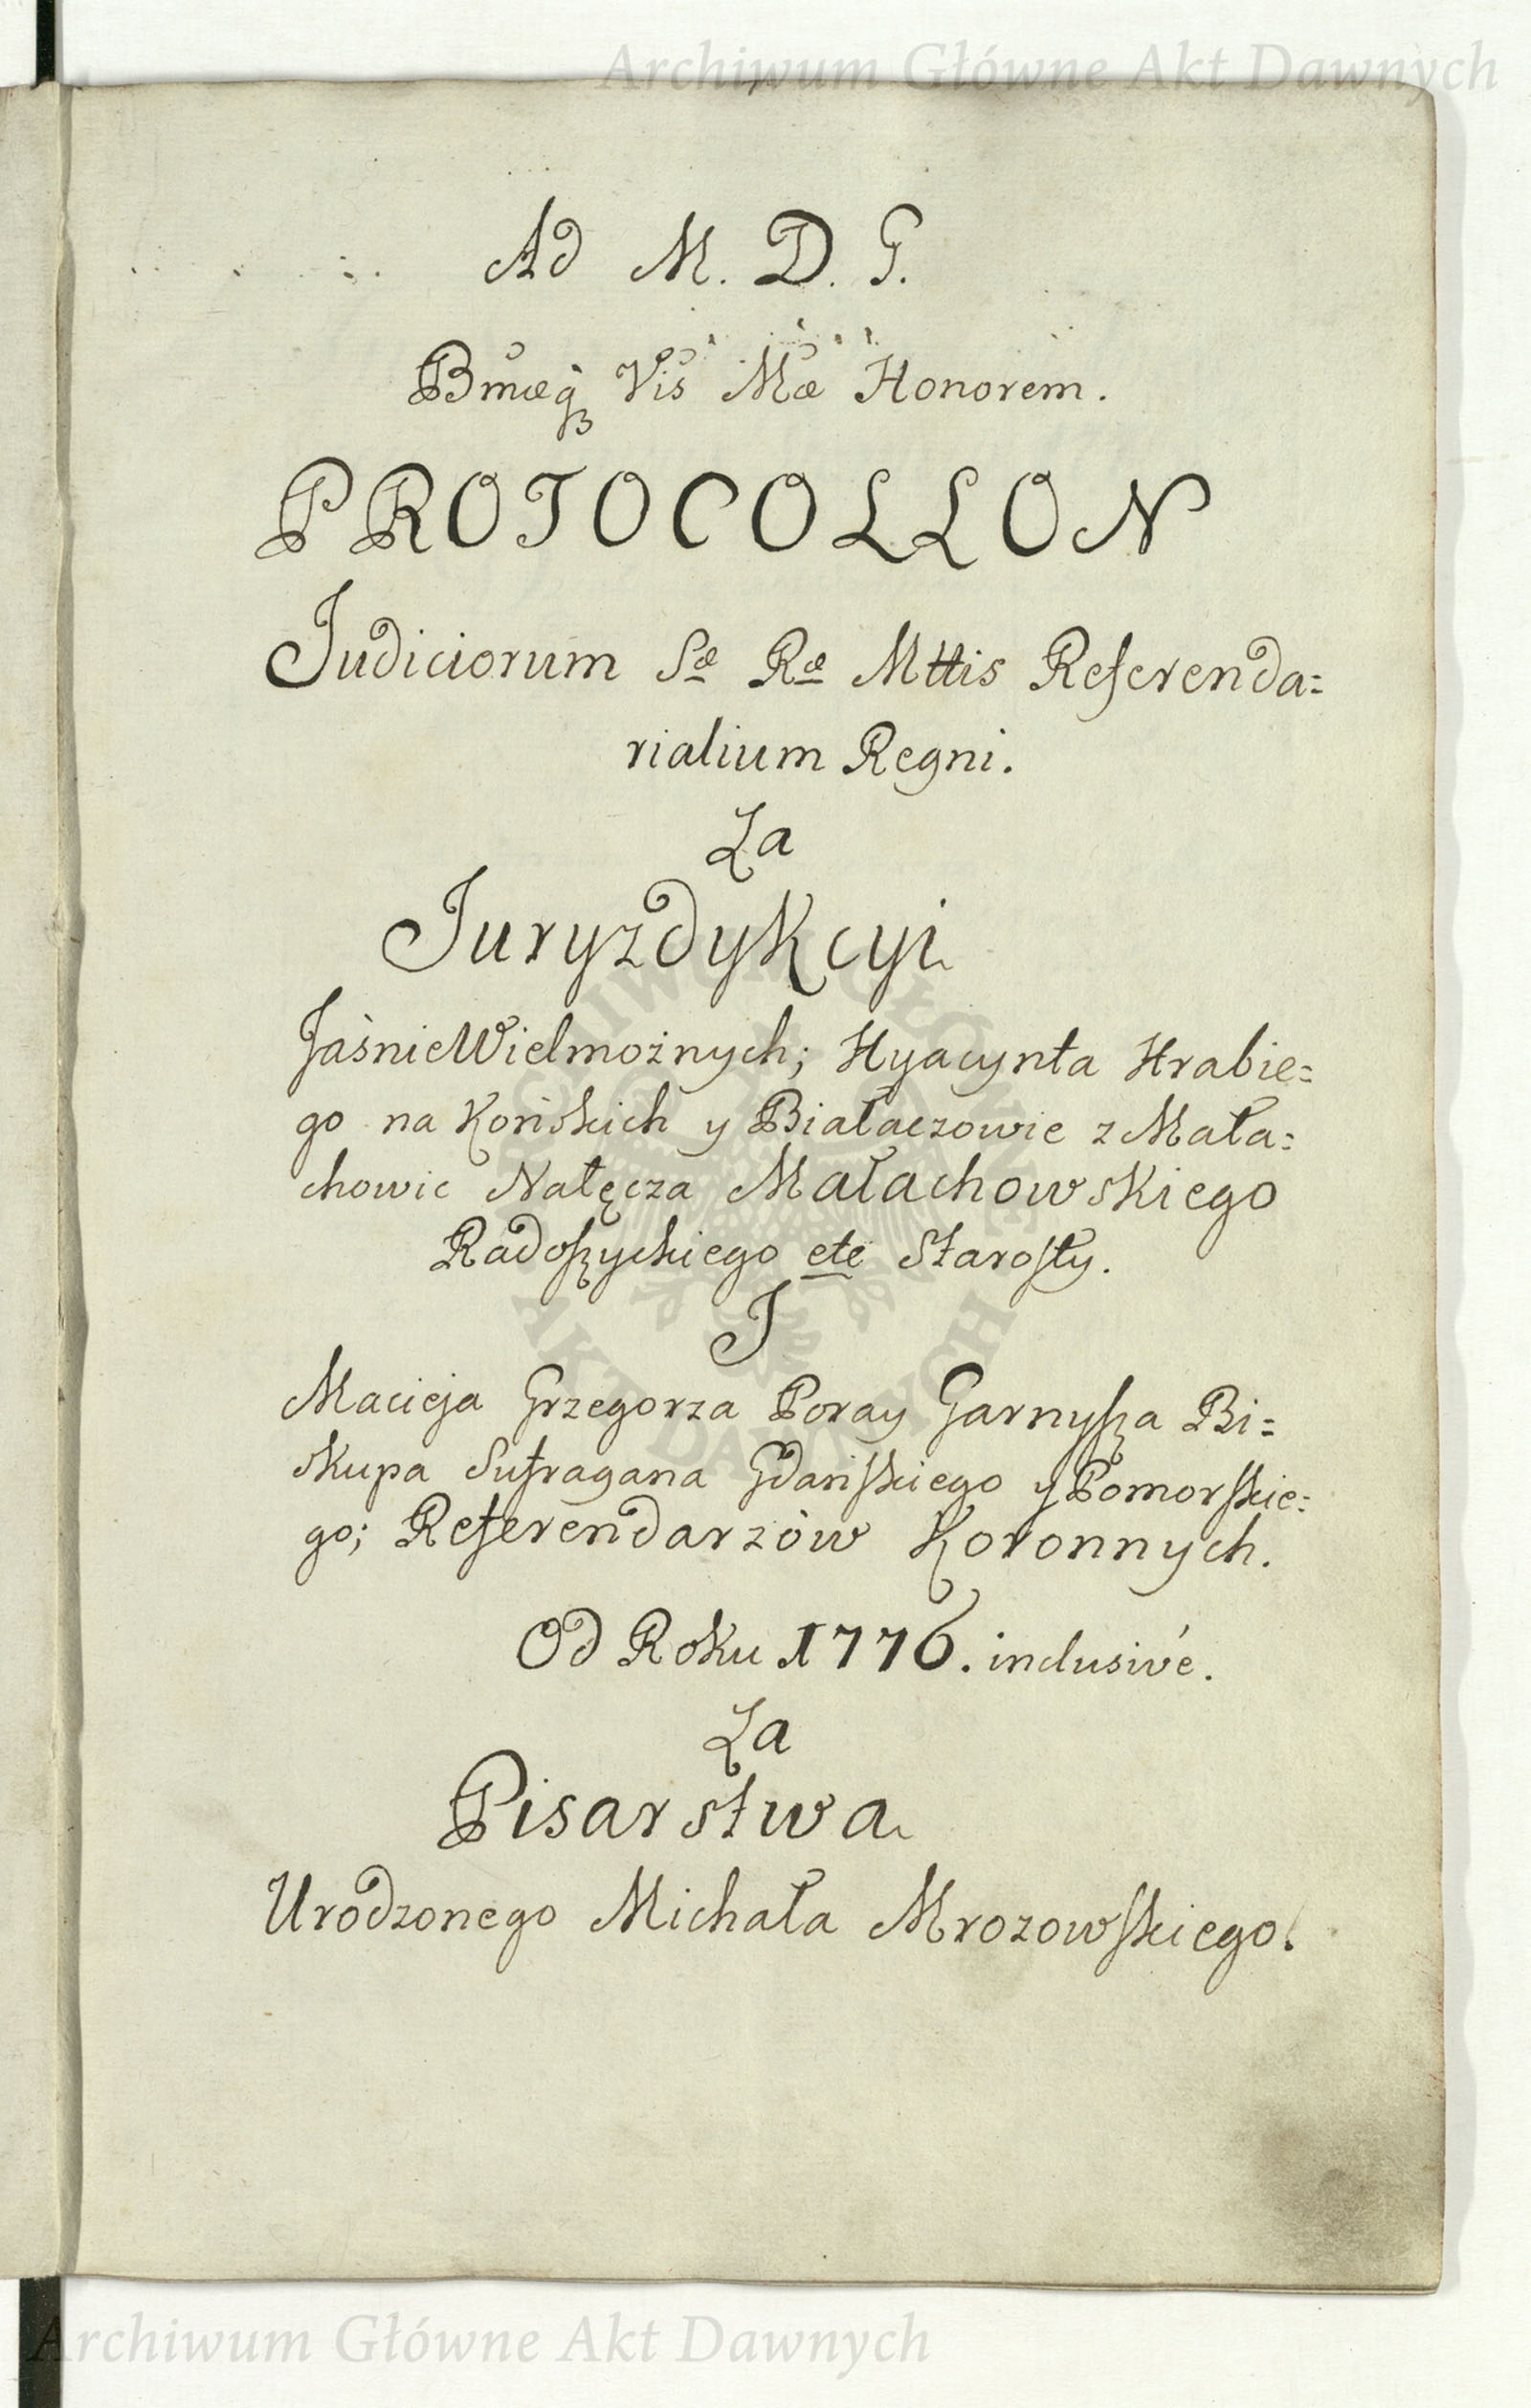 Archiwum Główne Akt Dawnych
Ad M. D. G.
Bmæq₃ Vis Mæ Honorem.
PROTOCOLLON
Judiciorum Sæ Ræ Mttis Referenda=
rialium Regni.
Za
Juryzdykcyi
JaśnieWielmożnych; Hyacynta Hrabie=
go na Końskich y Białaczowie z Mała=
chowic Nałęcza Małachowskiego
Radoszyckiego etc Starosty.
J
Macieja Grzegorza Poray Garnysza Bi=
skupa Sufragana Gdańskiego y Pomorskie=
go; Referendarzów Koronnych.
Od Roku 1776. inclusivé.
Za
Pisarstwa
Urodzonego Michała Mrozowskiego.
ARCHIWUM GŁÓWNE
AKT DAWNYCH
Archiwum Główne Akt Dawnych